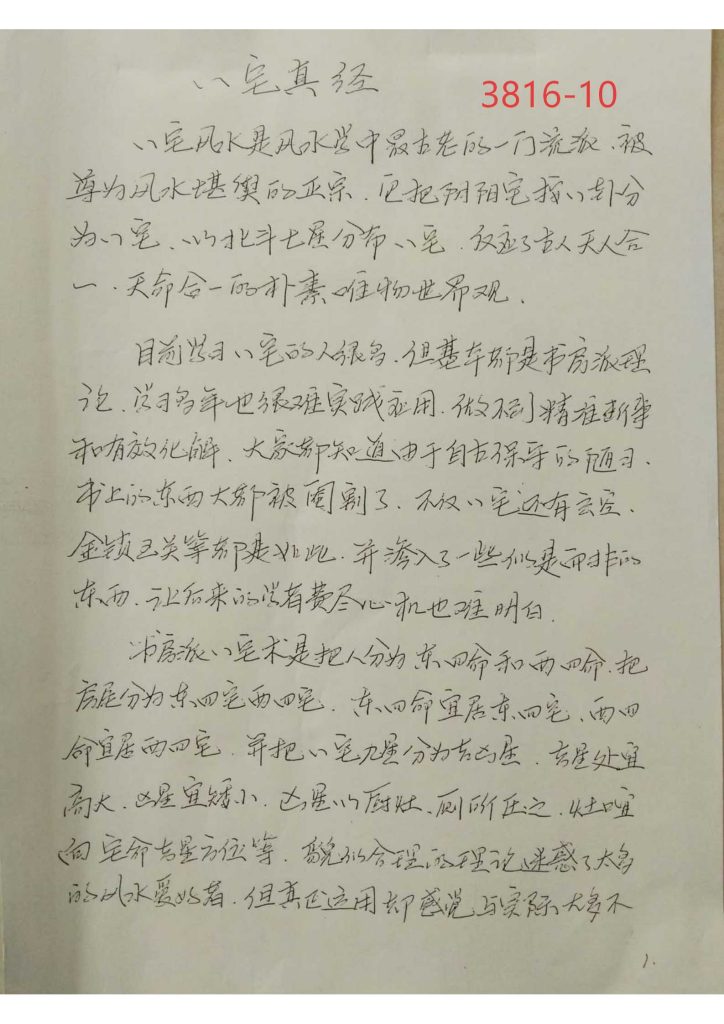 八宅真经
3816-10
八宅风水是风水学中最古老的一门流派、被
尊为风水堪舆的正宗、它把阴阳宅按八卦分
为八宅、以北斗七星分布八宅、反应了古人天人合
一、天命合一的朴素唯物世界观、
目前学习八宅的人很多、但基本都是书房派理
论、学习多年也很难实践应用、做不到精准断事
和有效化解、大家都知道由于自古保守的陋习、
书上的东西大都被阉割了、不仅八宅还有玄空、
金锁玉关等都是如此、并渗入了一些似是而非的
东西、让后来的学者费尽心机也难明白、
书房派八宅术是把人分为东四命和西四命、把
房屋分为东四宅西四宅、东四命宜居东四宅、西四
命宜居西四宅、并把八宅九星分为吉凶星、吉星处宜
高大、凶星宜矮小、凶星以厨灶、厕所压之、灶口宜
向宅命吉星方位等、貌似合理的理论迷惑了太多
的风水爱好者、但真正运用却感觉与实际大多不
1.